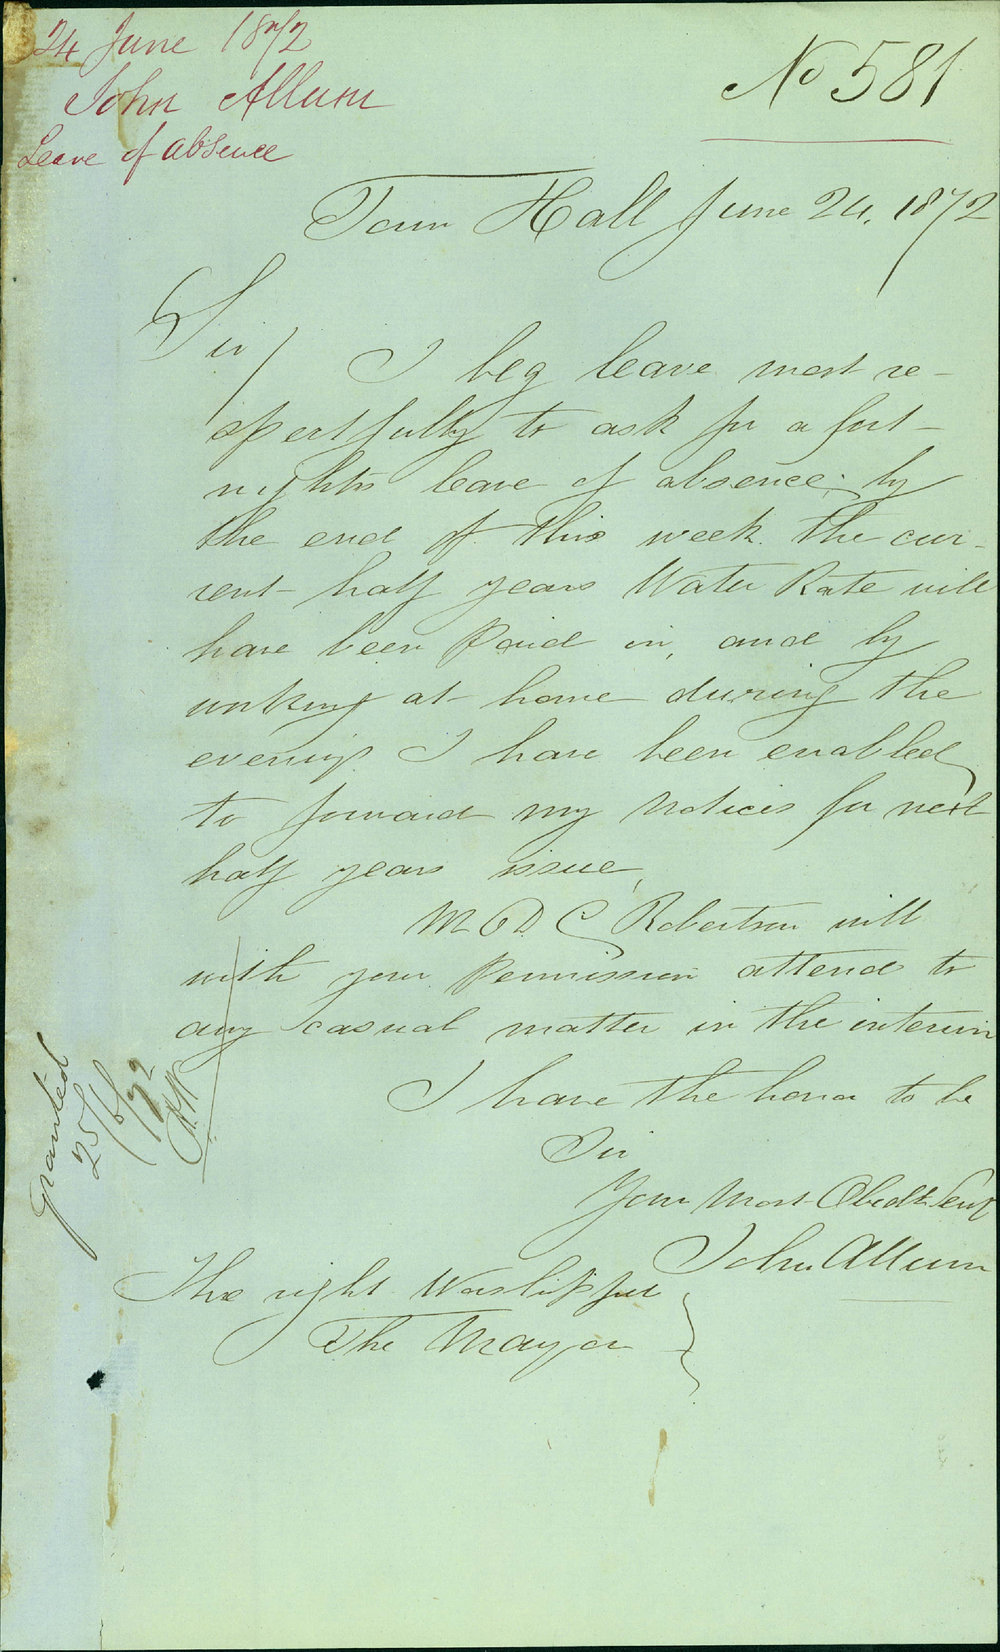 24 June 1872
John Allum
Leave of absence
No 581
Town Hall June 24. 1872
Sir/
I beg leave most re-
spectfully to ask for a fort-
nights leave of absence; by
the end of this week the cur-
rent half years Water Rate will
have been Paid in, and by
working at home during the
evenings I have been enabled
to forward my Notices for next
half years issue,
D C Robertson will
with your Permission attend to
any casual matter in the interim
I have the honor to be
Sir
Your Most Obedt Servt
John Allum
The right Worshipful
The Mayor
Granted
25/6/72